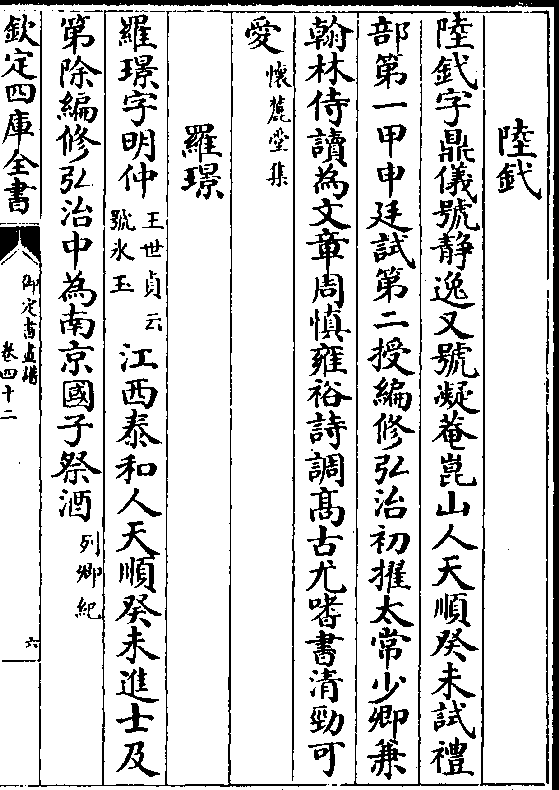 陸釴
陸釴字鼎儀號静逸又號凝菴崑山人天順癸未試禮
部第一甲申廷試第二授編修弘治初擢太常少卿兼
翰林侍讀為文章周慎雍裕詩調髙古尤嗜書清勁可
愛懷麓堂集
羅璟
羅璟字明仲王世貞云號氷玉江西泰和人天順癸未進士及
第除編修弘治中為南京國子祭酒列卿紀
欽定四庫全書
御定書畫譜
卷四十二
六